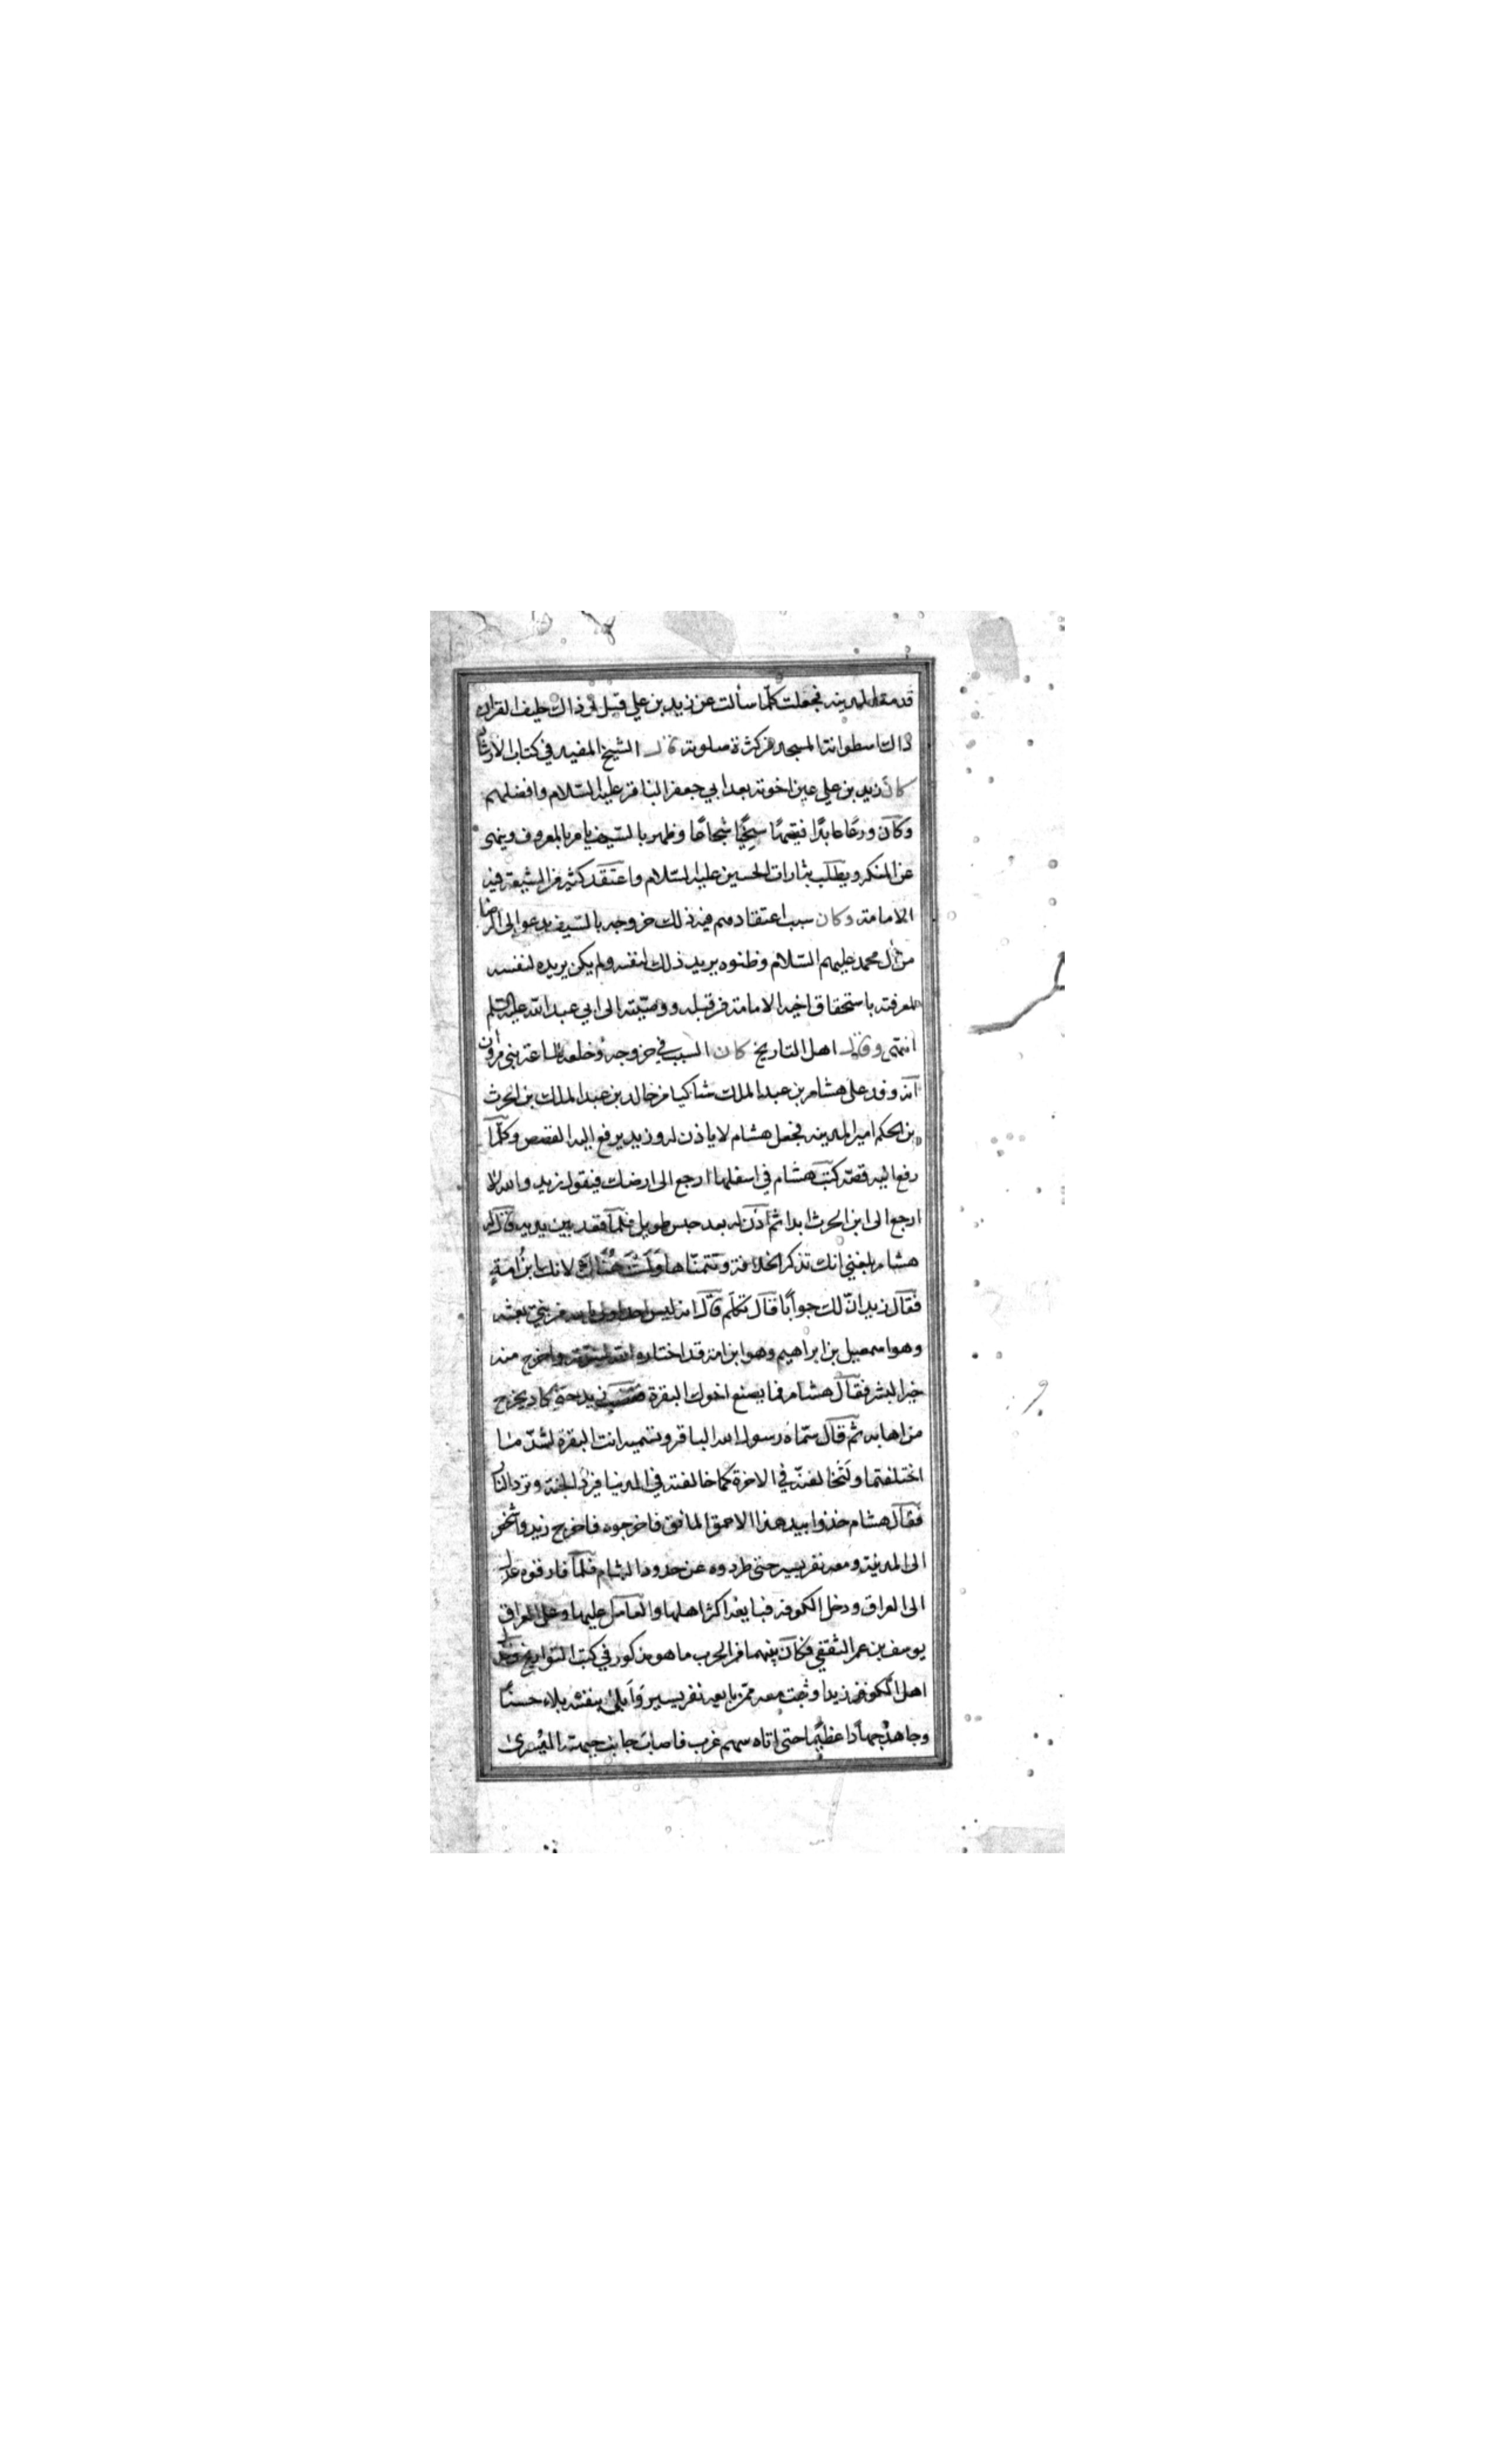 قدمت المدينه فجعلت كلّما سألت عن زيد بن علي قيل لى ذاك حليف القران
ذاك اسطوانة المسجد من كثرة صلوته قال الشيخ المفيد في كتاب الارشاد
كان زيد بن علي عين اخوته بعد ابي جعفر الباقر عليه السّلام وافضلهم
وكان ورعًا عابدًا فقيهًا سخيًّا شجاعًا وظهر بالسّيف يامر بالمعروف وينهى
عن المنكر ويطلب بثارات الحسين عليه السّلام واعتقد كثير من الشيعة فيه
الامامة وكان سبب اعتقادهم فيه ذلك خروجه بالسّيف يدعو الى الرضا
من آل محمد عليهم السّلام وظنوه يريد ذلك لنفسه ولم يكن يريده لنفسه
لمعرفته باستحقاق اخيه الامامة من قبله ووصيّته الى ابي عبد الله عليه السّلم
انتهى وقال اهل التاريخ كان السبب في خروجه وخلعه طاعة بني مروان
انه وفد على هشام بن عبد الملك شاكيا من خالد بن عبد الملك بن الحرث
بن الحكم امير المدينه فجعل هشام لا ياذن له وزيد يرفع اليه القصص وكلّما
رفع اليه قصّه كتب هشام في اسفلها ارجع الى ارضك فيقول زيد والله لا
ارجع الى ابن الحرث ابدا ثم اذن له بعد حبس طويل فلمّا قعد بين يديه قال له
هشام بلغني انك تذكر الخلافة وتتمنّاها ولست هُنَاك لانك ابن اُمةٍ
فقال زيد انّ لك جوابًا قال تكلّم قال انه ليس احد اولى بالله من نبي بعثه
وهو اسمعيل بن ابراهيم وهو ابن امة قد اختاره الله لنبوّته واخرج منه
خير البشر فقال هشام فما يصنع اخوك البقرة فغضب زيد حتى كاد يخرج
من اهابه ثم قال سمّاه رسول الله الباقر وتسميه انت البقرة لشدّ ما
اختلفتما ولتخالفنّه في الاخرة كما خالفته في الدنيا فيرد الجنة وترد النار
فقال هشام خذوا بيد هذا الاحمق المائق فاخرجوه فاخرج زيد واشخص
الى المدينة ومعه نفر يسير حتى طردوه عن حدود الشام فلمّا فارقوه عدل
الى العراق ودخل الكوفه فبايعه اكثر اهلها والعامل عليها وعلى العراق
يوسف بن عمر الثقفي فكان بينهما من الحرب ما هو مذكور في كتب التواريخ وخذل
اهل الكوفه زيدا وثبت معه ممّن بايعه نفر يسير وَاَبلى بنفسه بلاء حسنًا
وجاهد جهادًا عظيمًا حتى اتاه سهم غرب فاصاب جانب جبهته اليُسرىٰ